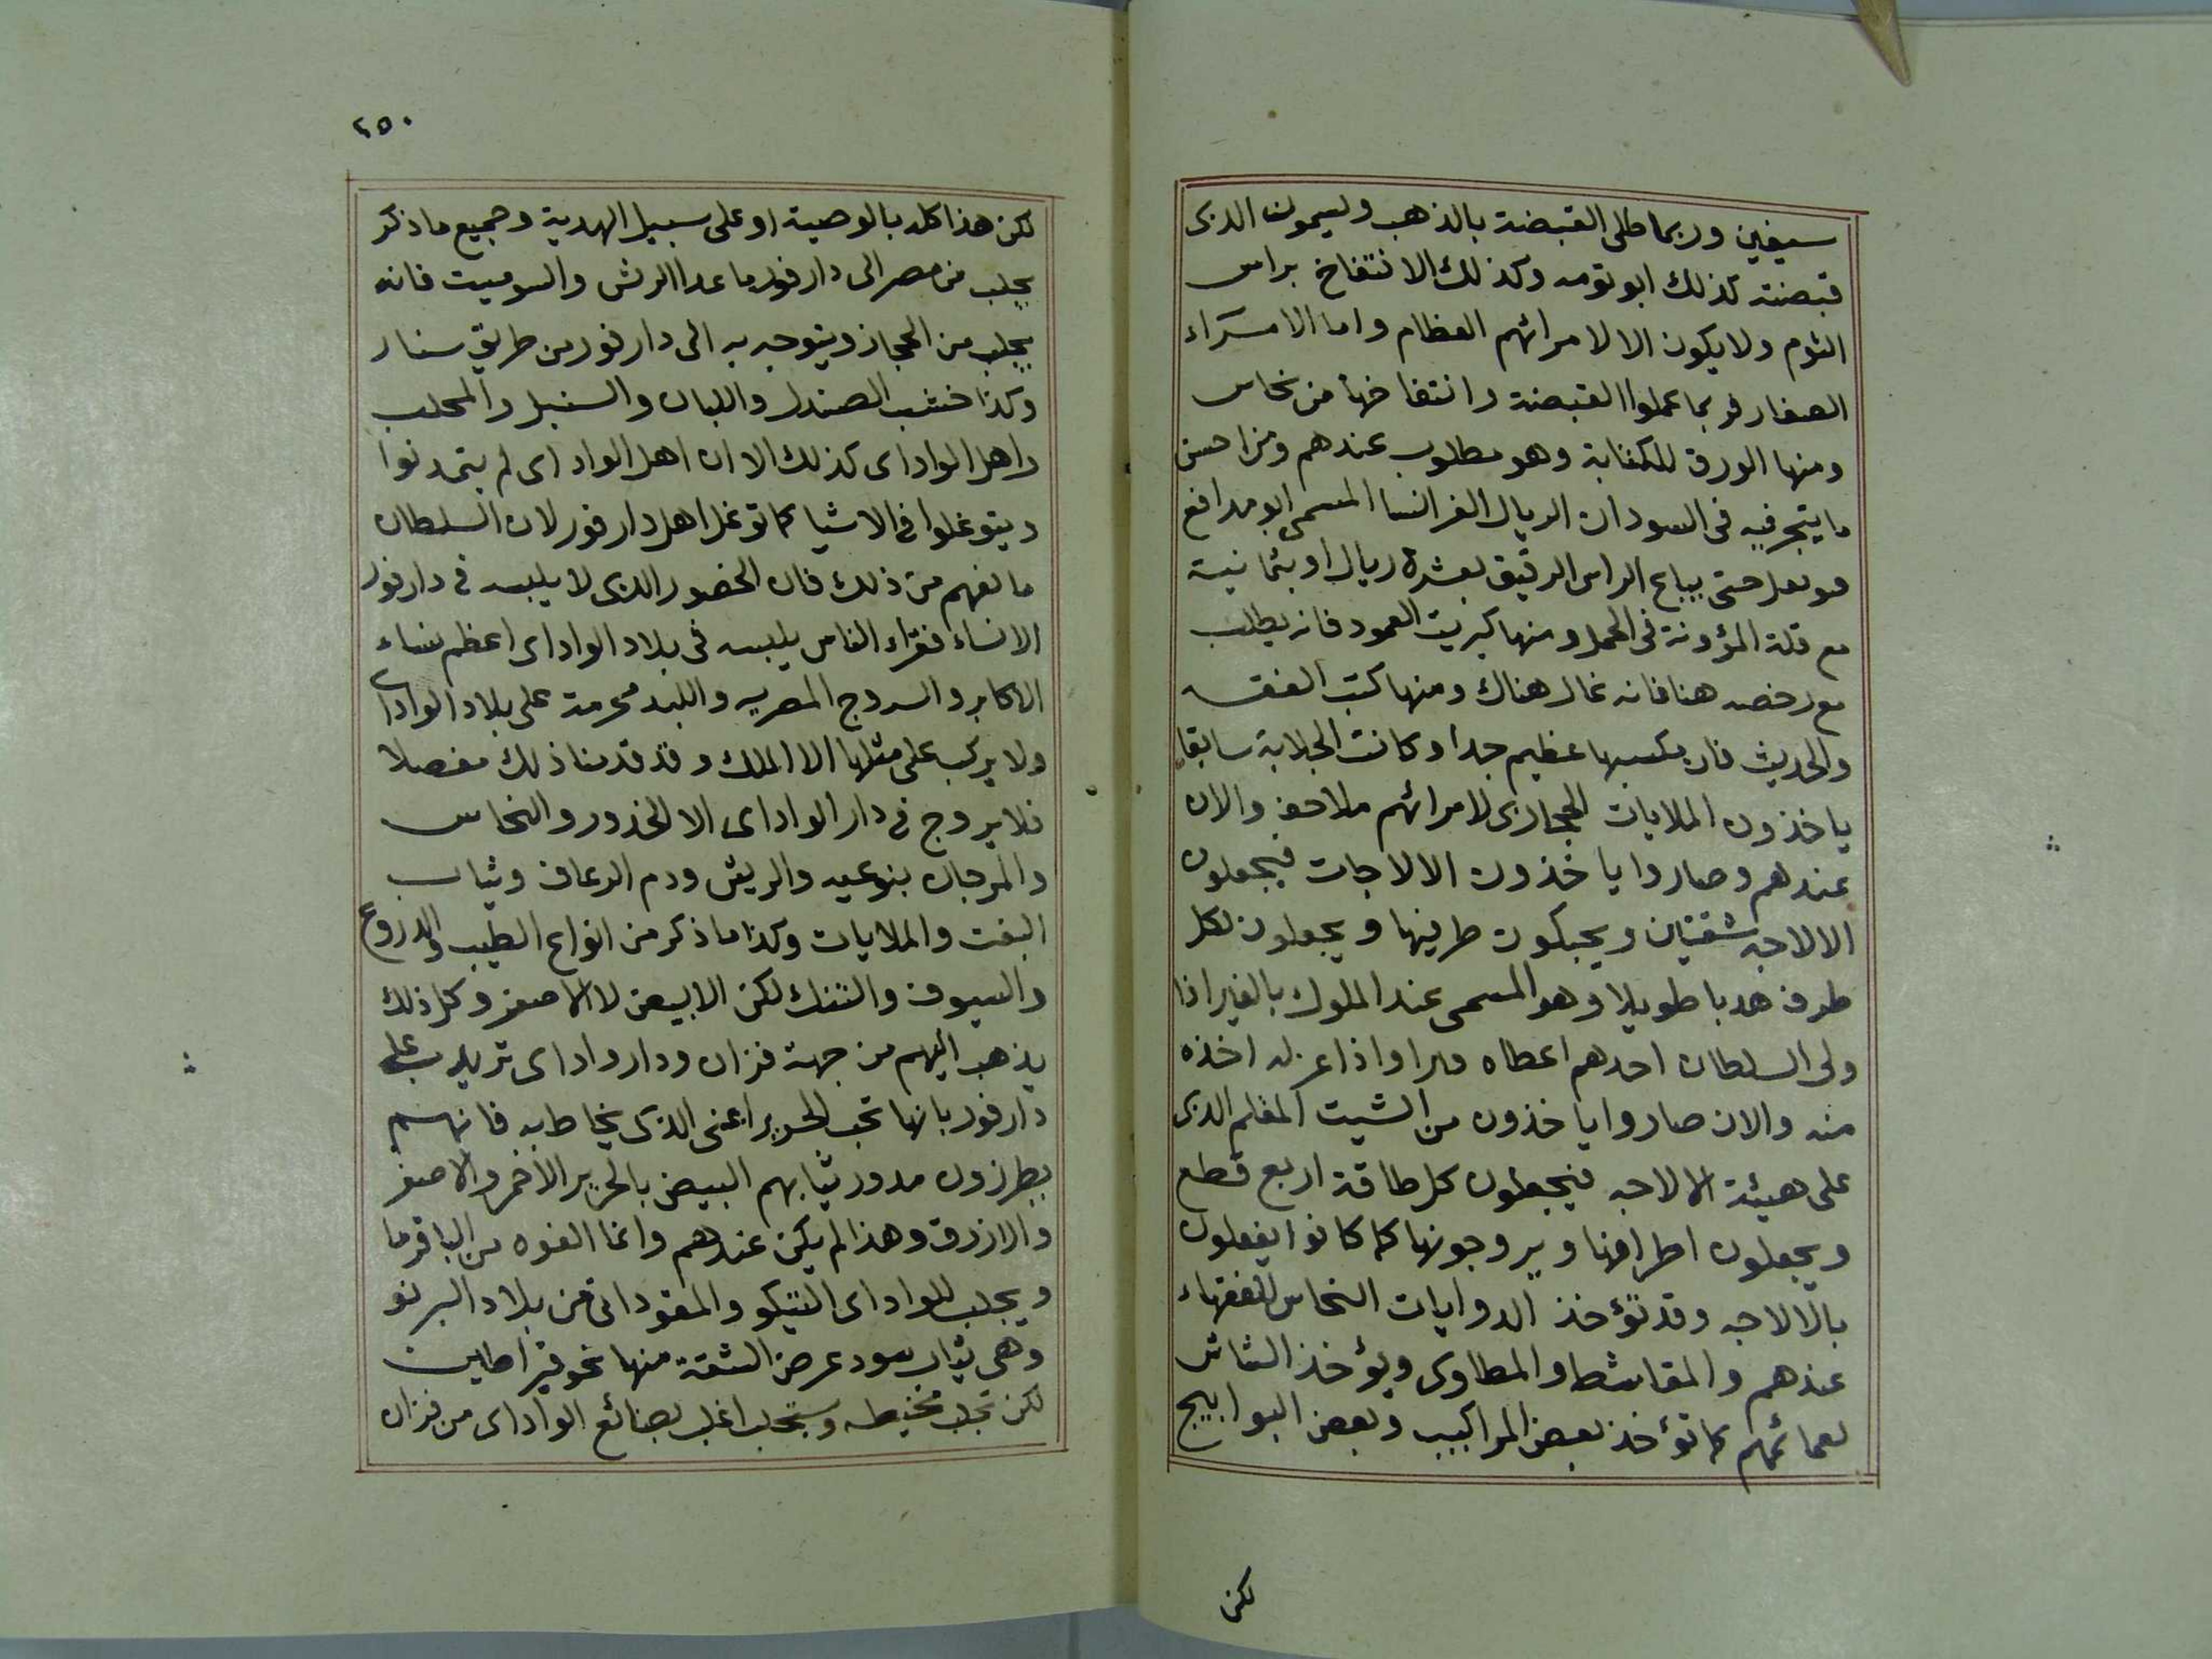 سيفين وربما طلى القبضة بالذهب ويسمون الذى
قبضته كذلك ابو تومه وكذلك الانتفاخ براس
الثوم ولا يكون الا لامرائهم العظام واما الامراء
الصغار فربما عملوا القبضة وانتفاخها من نحاس
ومنها الورق للكتابة وهو مطلوب عندهم ومن احسن
ما يتجر فيه فى السودان الريال الفرانسا المسمى ابو مدافع
حتى يباع الراس الرقيق بعشرة ريال او بثمانية
مع قلة المؤونة فى الحمل ومنها كبريت العمود فانه يطلب
مع رخصه هنا فانه غال هناك ومنها كتب الفقه
والحديث فان مكسبها عظيم جدا وكانت الجلابة سابقا
ياخذون الملايات الحجازى لامرائهم ملاحف والان
عندهم وصاروا ياخذون الالاجات فيجعلون
الالاجه شقتين ويحبكون طرفيها ويجعلون لكل
طرف هدبا طويلا وهو المسمى عند الملوك بالغير اذا
ولى السلطان احدهم اعطاه واذا عزله اخذه
منه والان صاروا ياخذون من الشيت المقلم الذى
على هيئة الالاجه فيجعلون كل طاقة اربع قطع
ويجعلون اطرافها ويروجونها كما كانوا يفعلون
بالالاجه وقد تؤخذ الدوايات النحاس للفقهاء
عندهم والمقاشط والمطاوى ويؤخذ الشاش
لعمائمهم كما تؤخذ بعض المراكيب وبعض البوابيج
لكن
٢٥٠
لكن هذا كله بالوصية او على سبيل الهدية وجميع ما ذكر
يجلب من مصر الى دارفور ما عدا الريش والسوميت فانه
يجلب من الحجاز ويتوجه به الى دارفور من طريق سنار
وكذا خشب الصندل واللبان والسنبل والمحلب
واهل الواداى كذلك الا ان اهل الواداى لم يتمدنوا
ويتوغلوا فى الاشيا كما توغل اهل دارفور لان السلطان
مانعهم من ذلك فان الخضور الذى لا يلبسه فى دارفور
الا نساء فقراء الناس يلبسه فى بلاد الواداى اعظم نساء
الاكابر والسروج المصريه واللبد محرمة على بلاد الواداى
ولا يركب على مثلها الا الملك وقد قدمنا ذلك مفصلا
فلا يروج فى دار الواداى الا الخدور والنحاس
والمرجان بنوعيه والريش ودم الرعاف وثياب
البفت والملايات وكذا ما ذكر من انواع الطيب والدروع
والسيوف والتنك لكن الابيض لا الاصفر وكل ذلك
يذهب اليهم من جهة فزان ودار واداى تزيد على
دارفور بانها تجب الحرير اعنى الذى يخاط به فانهم
يطرزون مدور ثيابهم البيض بالحرير الاحمر والاصفر
والازرق وهذا لم يكن عندهم وانما الفوه من الباقرما
ويجلب للواداى التيكو والمقودانى من بلاد البرنو
وهى ثياب سود عرض الشقة منها نحو قيراطين
لكن تجلب مخيطه وتجلب اغلب بضائع الواداى من فزان